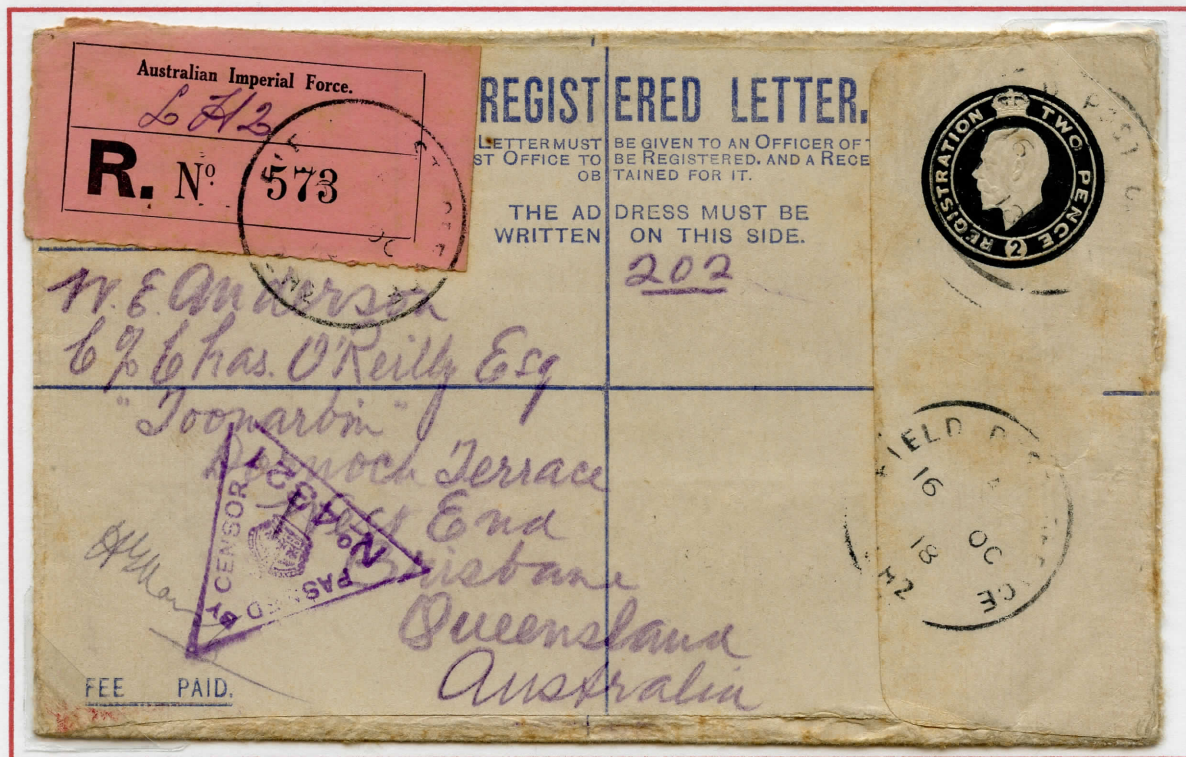 Australian Imperial Force.
L H2
R. No 573
REGISTERED LETTER.
LETTER MUST BE GIVEN TO AN OFFICER OF
ST OFFICE TO BE REGISTERED, AND A RECE
OBTAINED FOR IT.
THE ADDRESS MUST BE
WRITTEN ON THIS SIDE.
202
REGISTRATION TWO PENCE 2
W. E. Anderson
C/o Chas. O'Reilly Esq
"Toonarbin"
Dornoch Terrace
West End
Brisbane
Queensland
Australia
PASSED BY CENSOR
No 4321
FIELD
16
OC
18
H2
FEE PAID.